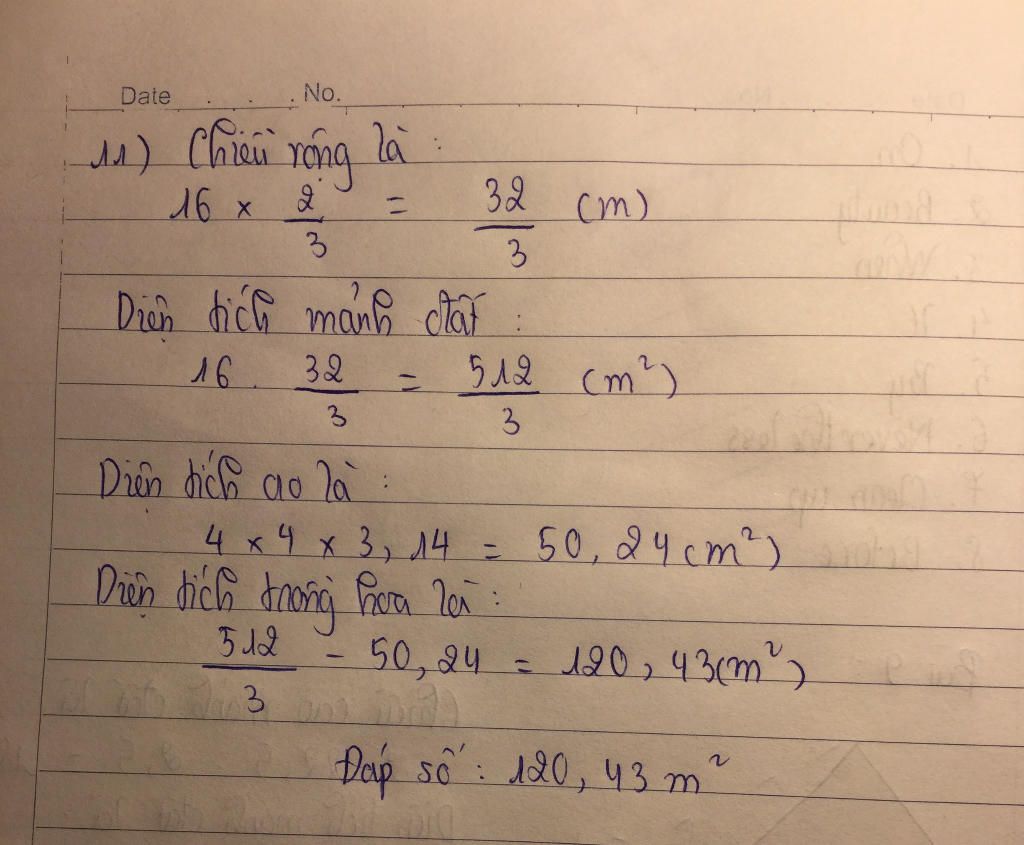 Date . . . . No.
11) Chiều rộng là :
16 x 2/3 = 32/3 (m)
Diện tích mảnh đất :
16 . 32/3 = 512/3 (m²)
Diện tích ao là :
4 x 4 x 3,14 = 50,24 (m²)
Diện tích trồng hoa là :
512/3 - 50,24 = 120,43 (m²)
Đáp số : 120,43 m²